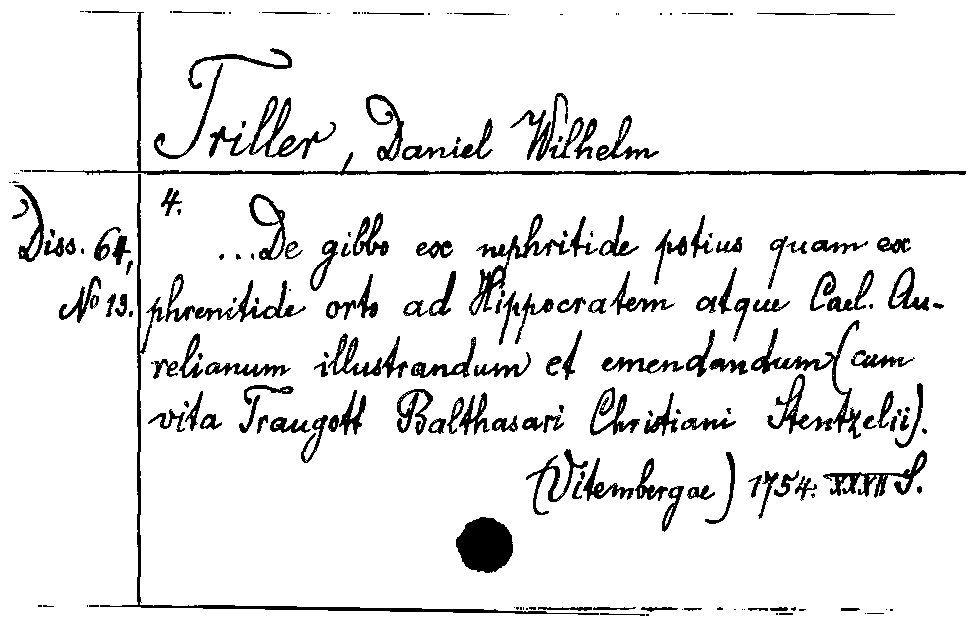 Triller, Daniel Wilhelm
4.
Diss. 64,
No 13.
...De gibbo ex nephritide potius quam ex
phrenitide orto ad Hippocratem atque Cael. Au-
relianum illustrandum et emendandum (cum
vita Traugott Balthasari Christiani Stentzelii).
(Vitembergae) 1754. XXXII S.